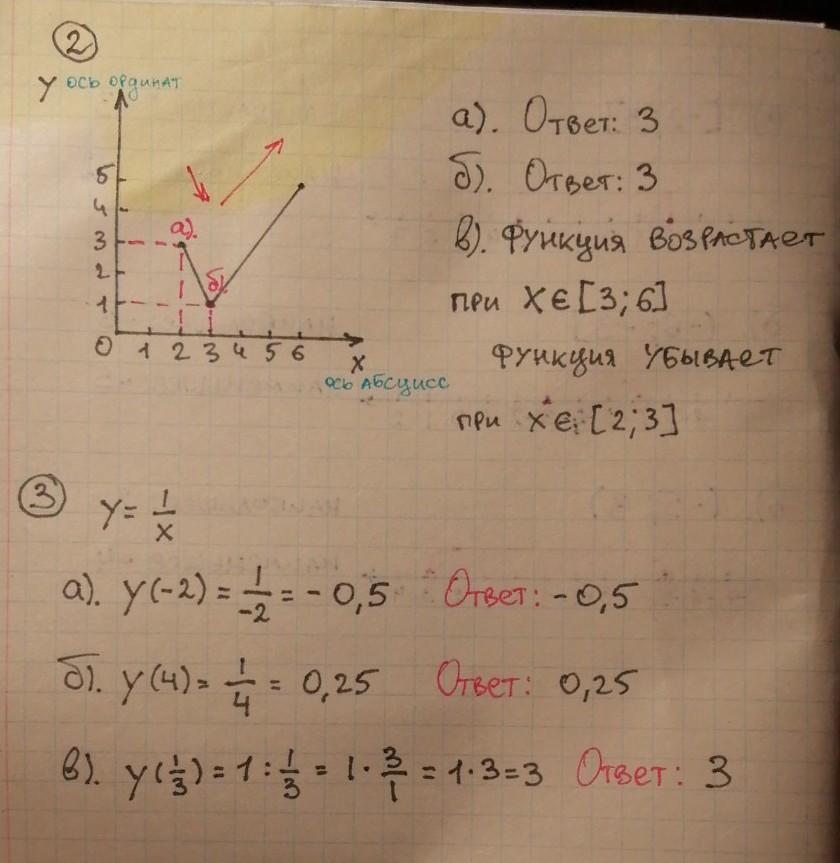 2
У ось ординат
5
4
3
2
1
0 1 2 3 4 5 6
а).
б).
X
ось абсцисс
а). Ответ: 3
б). Ответ: 3
в). функция возрастает
при X∈[3;6]
функция убывает
при X∈[2;3]
3 y = 1/x
а). y(-2) = 1/-2 = -0,5 Ответ: -0,5
б). y(4) = 1/4 = 0,25 Ответ: 0,25
в). y(1/3) = 1 : 1/3 = 1 · 3/1 = 1·3=3 Ответ: 3